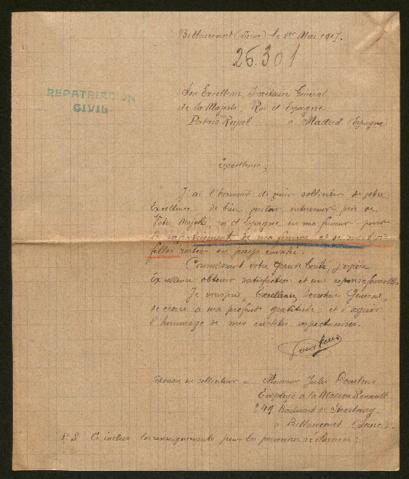 Billancourt (Seine) le 1er Mai 1917.
26.301
REPATRIACION
CIVIL
Son Excellence, Secrétaire Général
de Sa Majesté, Roi d'Espagne
Palais Royal à Madrid Espagne
Excellence,
J'ai l'honneur de venir solliciter de votre
Excellence de bien vouloir intervenir près de
Majesté, d'Espagne en ma faveur pour
le rapatriement de ma femme et de
filles restées en pays envahi.
Connaissant votre grande bonté, j'espère
Excellence obtenir satisfaction et une réponse favorable.
Je vous prie, Excellence, Secrétaire Général,
de croire à ma profonde gratitude, et d'agréer
l'hommage de mes respectueuses.
Monsieur Jules
Employé à la Maison Renault
Boulevard de Strasbourg
à Billancourt (Seine)
P.S. Ci inclus les renseignements pour les personnes réclamées.